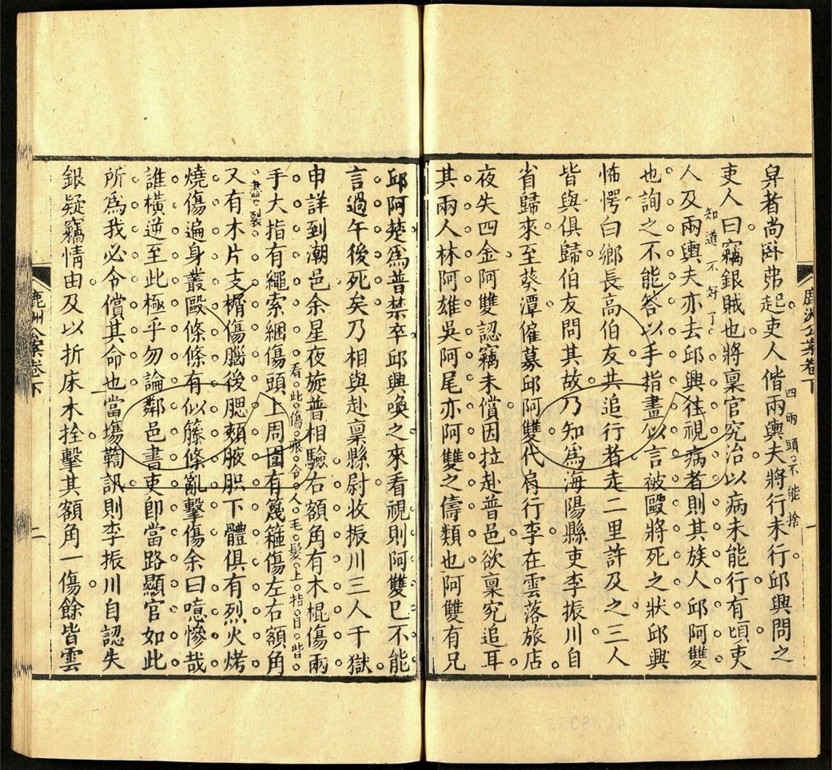 舁者尚卧弗起吏人偕兩輿夫將行未行邱興問之
四兩頭不能捨
吏人曰竊銀賊也將稟官究治以病未能行有頃吏
人及兩輿夫亦去邱興往視病者則其族人邱阿雙
知道不好了
也詢之不能答以手指畫似言被毆將死之狀邱興
怖愕白鄉長高伯友共追行者走二里許及之三人
皆與俱歸伯友問其故乃知為海陽縣吏李振川自
省歸來至葵潭僱募邱阿雙代肩行李在雲落旅店
夜失四金阿雙認竊未償因拉赴普邑欲稟究追耳
其兩人林阿雄吳阿尾亦阿雙之儔類也阿雙有兄
邱阿楚為普禁卒邱興喚之來看視則阿雙已不能
言過午後死矣乃相與赴稟縣尉收振川三人于獄
申詳到潮邑余星夜旋普相驗右額角有木棍傷兩
手大指有繩索綑傷頭上周圍有篾箍傷左右額角
看此傷痕令人毛髮上指目眥
盡裂
又有木片支楯傷腦後腮頰腋胑下體俱有烈火烤
燒傷遍身叢毆條條有似籐條亂擊傷余曰噫慘哉
誰橫逆至此極乎勿論鄰邑書吏即當路顯官如此
所為我必令償其命也當場鞫訊則李振川自認失
銀疑竊情由及以折床木拴擊其額角一傷餘皆雲
鹿洲公案卷下
鹿洲公案卷下
二